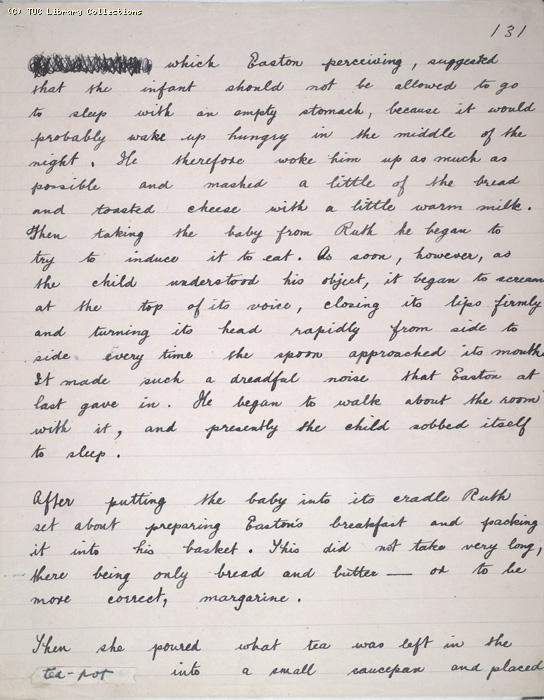 (C) TUC Library Collections
131
which Easton perceiving, suggested
that the infant should not be allowed to go
to sleep with an empty stomach, because it would
probably wake up hungry in the middle of the
night. He therefore woke him up as much as
possible and mashed a little of the bread
and toasted cheese with a little warm milk.
Then taking the baby from Ruth he began to
try to induce it to eat. As soon, however, as
the child understood his object, it began to scream
at the top of its voice, closing its lips firmly
and turning its head rapidly from side to
side every time the spoon approached its mouth.
It made such a dreadful noise that Easton at
last gave in. He began to walk about the room
with it, and presently the child sobbed itself
to sleep.
After putting the baby into its cradle Ruth
set about preparing Easton's breakfast and packing
it into his basket. This did not take very long,
there being only bread and butter — or to be
more correct, margarine.
Then she poured what tea was left in the
tea-pot into a small saucepan and placed